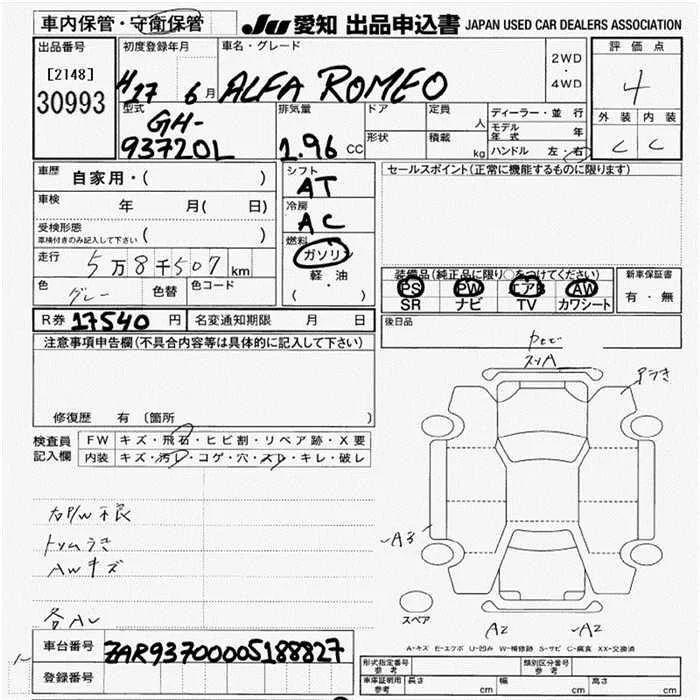 車内保管・守衛保管
JU 愛知 出品申込書 JAPAN USED CAR DEALERS ASSOCIATION
出品番号
[2148]
30993
初度登録年月
H17 6月
車名・グレード
ALFA ROMEO
2WD
・
4WD
評価点
4
外装 内装
C C
型式
GH-
93720L
排気量
1.96 CC
ドア
定員
人
形状
積載
kg
ディーラー・並行
モデル年式 年
ハンドル 左・右
車歴 自家用・( )
車検 年 月( 日)
受検形態
車検付きのみ記入して下さい ( )
走行 5万8千507km
色 グレー 色替 色コード
シフト
AT
冷房
AC
燃料
ガソリン
・
軽・油
( )
セールスポイント(正常に機能するものに限ります)
装備品(純正品に限り○をつけてください)
PS PW エアB AW
SR ナビ TV カワシート
新車保証書
有・無
R券 17540円 名変通知期限 月 日
後日品
注意事項申告欄(不具合内容等は具体的に記入して下さい)
修復歴 有〔箇所 〕
検査員
記入欄
FW キズ・飛石・ヒビ割・リペア跡・X要
内装 キズ・汚レ・コゲ・穴・スレ・キレ・破レ
右P/W不良
トリムうき
AWキズ
各AU
スリA
A3
スペア
A2 A2
A-キズ E-エクボ U-凹み W-補修跡 S-サビ C-腐食 XX-交換済
車台番号 ZAR93700005188827
登録番号
形式指定番号
参考
類別区分番号
参考
車庫証明用
参考
長さ cm 幅 cm 高さ cm